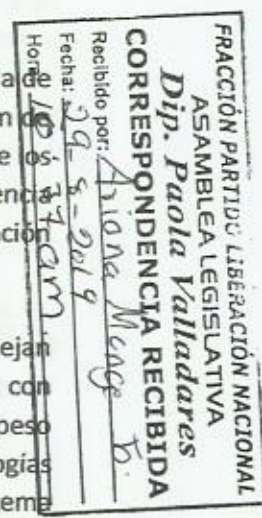 FRACCIÓN PARTIDO LIBERACIÓN NACIONAL
ASAMBLEA LEGISLATIVA
Dip. Paola Valladares
CORRESPONDENCIA RECIBIDA
Recibido por: Ariana Monge
Fecha: 29-8-2019
Hora: 10:37am
a de
n de
e los
encia
ación
ejan
con
peso
ogías